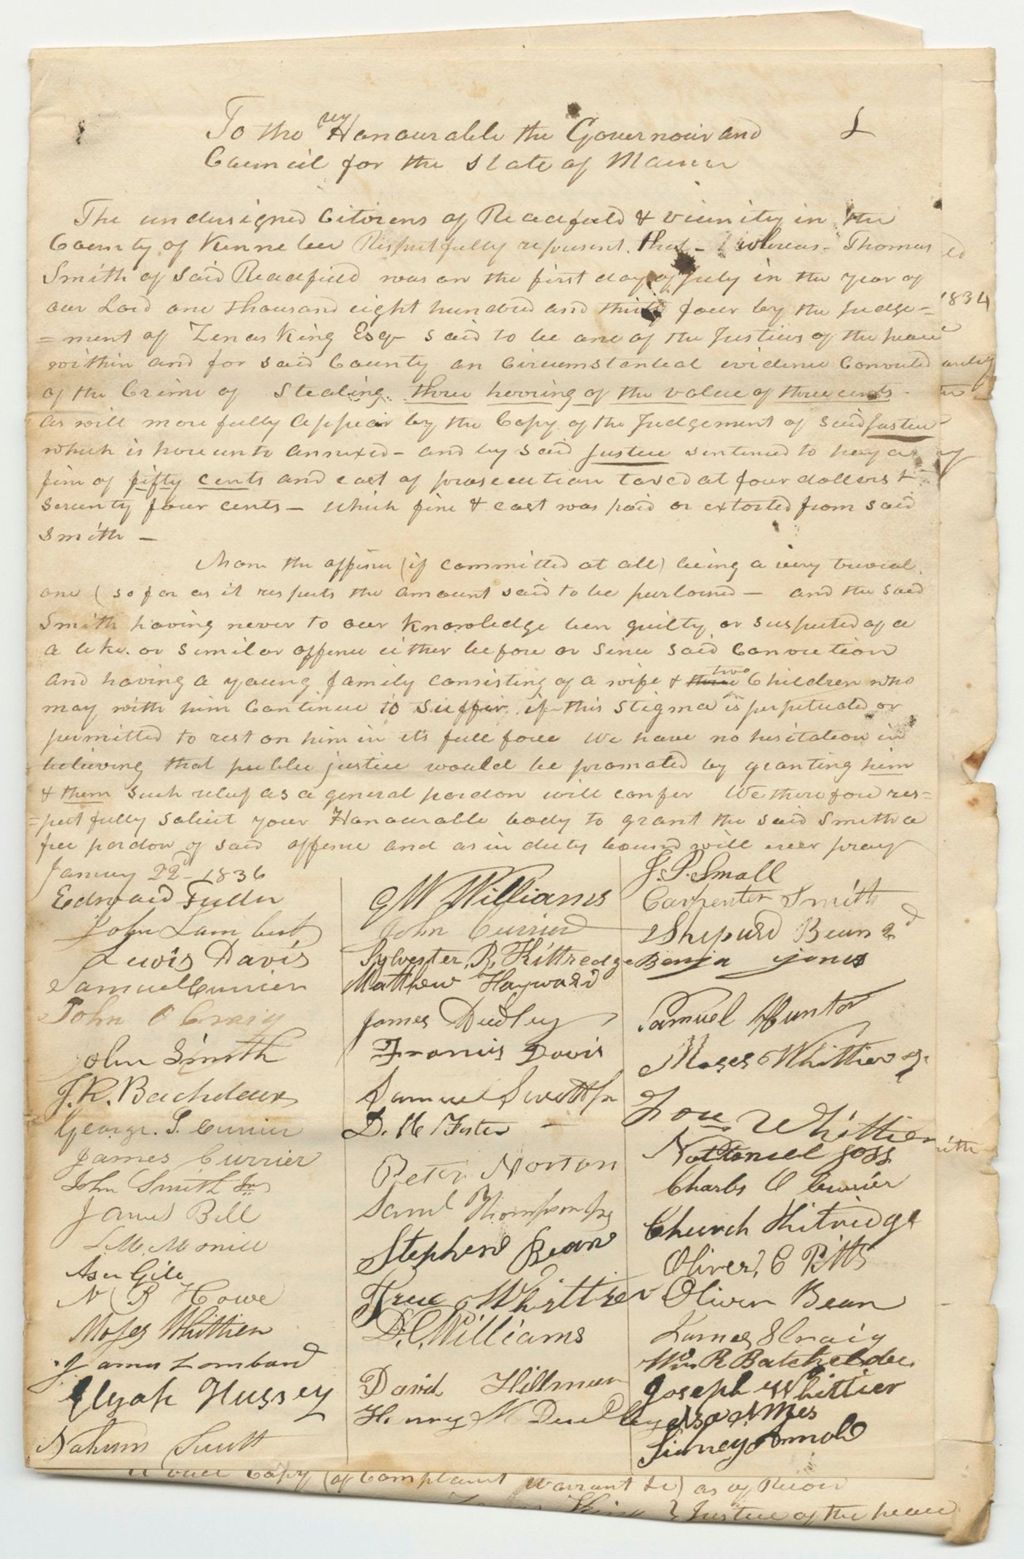 To the Honourable the Governour and
Council for the State of Maine
The undersigned Citizens of Readfield & vicinity in the
County of Kennebec Respectfully represent that - whereas - Thomas
Smith of said Readfield was on the first day of July in the year of
our Lord one thousand eight hundred and thirty four by the Judge=
=ment of Zenas King Esqr said to be one of the Justices of the peace
within and for said County on Circumstantial evidence Convicted
of the Crime of Stealing three herring of the value of three cents -
as will more fully appear by the Copy of the Judgement of said Justice
which is hereunto annexed - and by said Justice sentenced to pay a
fine of fifty cents and cost of prosecution taxed at four dollars &
seventy four cents - which fine & cost was paid or extorted from said
Smith -
Now the offense (if committed at all) being a very trivial
one (so far as it respects the amount said to be purloined - and the said
Smith having never to our knowledge been guilty or suspected of a
a like or similar offence either before or since said Conviction
and having a young family consisting of a wife & two Children who
may with him Continue to suffer if this stigma is perpetuated or
permitted to rest on him in its full force We have no hesitation in
believing that public justice would be promoted by granting him
& them such relief as a general pardon will confer We therefore res=
=pectfully solicit your Honourable body to grant the said Smith a
free pardon of said offence and as in duty bound will ever pray
January 22d 1836
Edward Fuller
John Lambert
Lewis Davis
Samuel Currier
John O Craig
John Smith
J. R. Bachelder
George S. Currier
James Currier
John Smith Jr
James Bell
L M. Morrill
Asa Gile
N B Howe
Moses Whittier
James Lombard
Elijah Hussey
Nahum Swett
G W Williams
John Currier
Sylvester R. Kittredge
Matthew Hayward
James Dudley
Francis Davis
Samuel Swett Jr
D. H Foster
Peter Norton
Saml Thompson Jr
Stephen Bean
True Whittier
D. C. Williams
David Hillman
Henry N Dudley
J. P. Small
Carpenter Smith
Shepard Bean 2d
Benja Jones
Samuel Hunton
Moses Whittier Jr
Nathaniel Goss
Charles C Currier
Church Kitridge
Oliver C Pitts
Oliver Bean
James S Craig
Wm R Batchelder
Joseph Whittier
Sidney Arnold
1834
A true Copy (of Complaint Warrant &c) as of Record
Justice of the peace